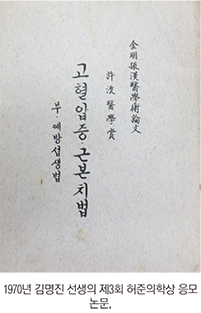 金明振漢醫學術論文
許浚醫學賞
고혈압증·근본치법
부·예방섭생법
1970년 김명진 선생의 제3회 허준의학상 응모
논문.